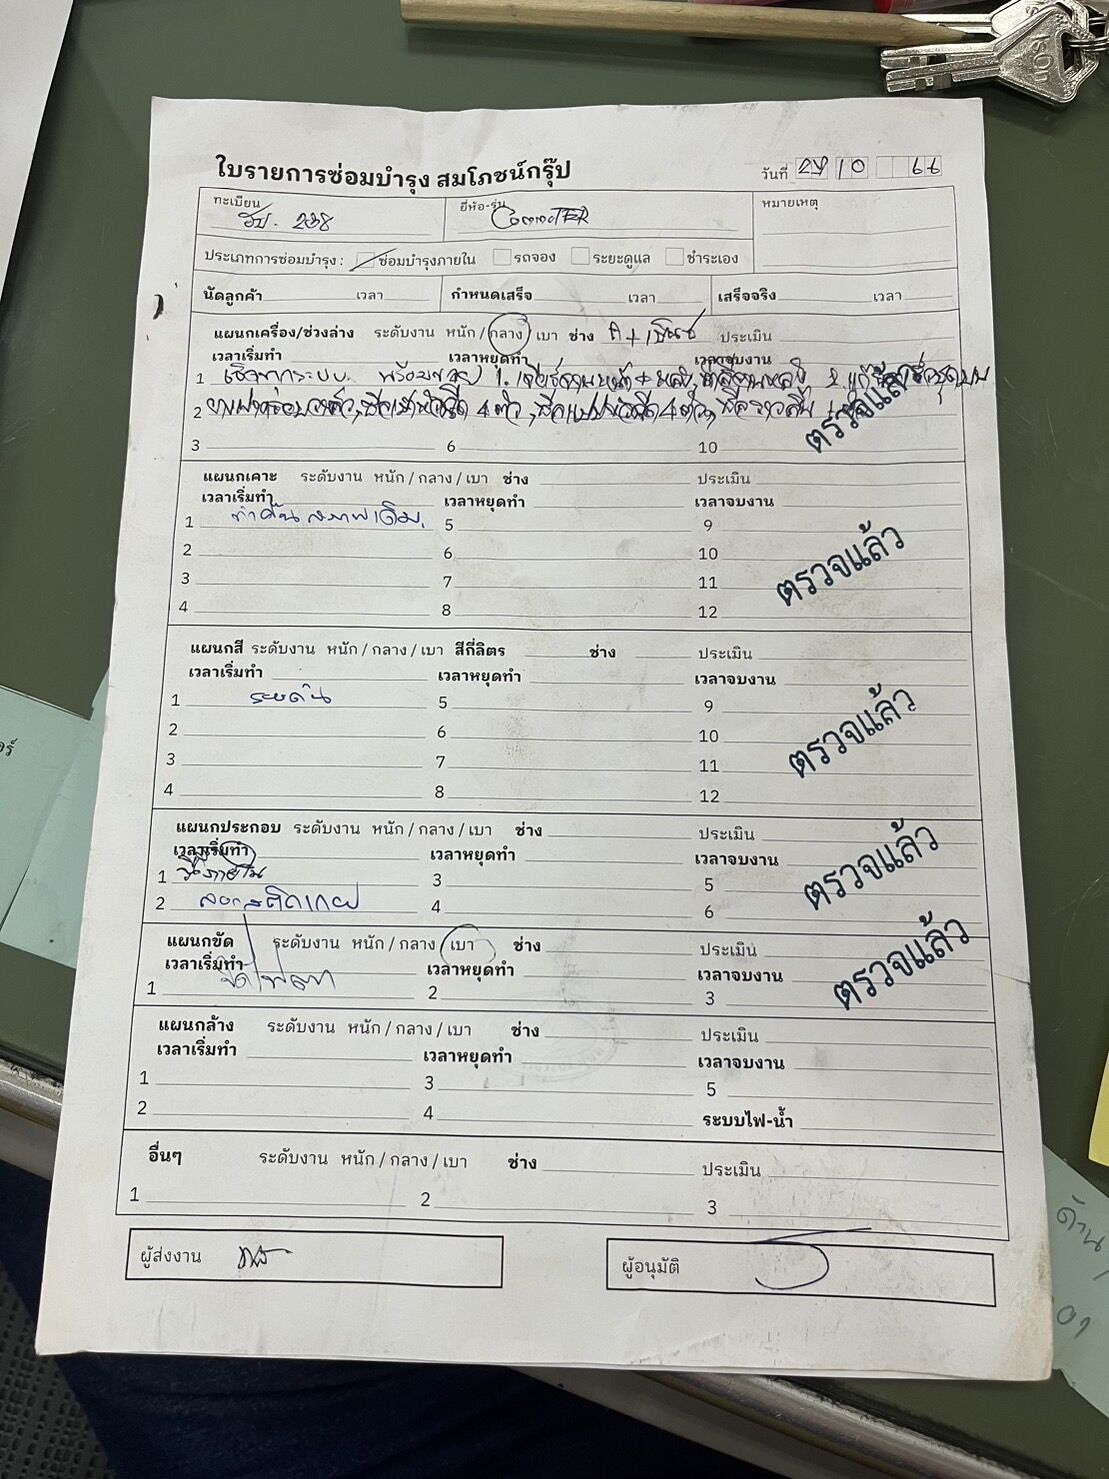 ใบรายการซ่อมบำรุง สมโภชน์กรุ๊ป
วันที่ 10 66
ทะเบียน ฮป. 238
ยี่ห้อ-รุ่น CommuTER
หมายเหตุ
ประเภทการซ่อมบำรุง : ซ่อมบำรุงภายใน รถจอง ระยะดูแล ชำระเอง
นัดลูกค้า เวลา กำหนดเสร็จ เวลา เสร็จจริง เวลา
แผนกเครื่อง/ช่วงล่าง ระดับงาน หนัก / กลาง / เบา ช่าง ประเมิน
เวลาเริ่มทำ เวลาหยุดทำ เวลาจบงาน
1 เช็คทุกระบบ พร้อมขาย 1.
2 4 ตัว, 4 ตัว,
3 6 10
ตรวจแล้ว
แผนกเคาะ ระดับงาน หนัก / กลาง / เบา ช่าง ประเมิน
เวลาเริ่มทำ เวลาหยุดทำ เวลาจบงาน
1 ทำคืนสภาพเดิม. 5 9
2 6 10
3 7 11
4 8 12
ตรวจแล้ว
แผนกสี ระดับงาน หนัก / กลาง / เบา สีกี่ลิตร ช่าง ประเมิน
เวลาเริ่มทำ เวลาหยุดทำ เวลาจบงาน
1 5 9
2 6 10
3 7 11
4 8 12
ตรวจแล้ว
แผนกประกอบ ระดับงาน หนัก / กลาง / เบา ช่าง ประเมิน
เวลาเริ่มทำ เวลาหยุดทำ เวลาจบงาน
1 3 5
2 ลอกสติกเกอร์ 4 6
ตรวจแล้ว
แผนกขัด ระดับงาน หนัก / กลาง / เบา ช่าง ประเมิน
เวลาเริ่มทำ เวลาหยุดทำ เวลาจบงาน
1 2 3
ตรวจแล้ว
แผนกล้าง ระดับงาน หนัก / กลาง / เบา ช่าง ประเมิน
เวลาเริ่มทำ เวลาหยุดทำ เวลาจบงาน
1 3 5
2 4 ระบบไฟ-น้ำ
อื่นๆ ระดับงาน หนัก / กลาง / เบา ช่าง ประเมิน
1 2 3
ผู้ส่งงาน
ผู้อนุมัติ